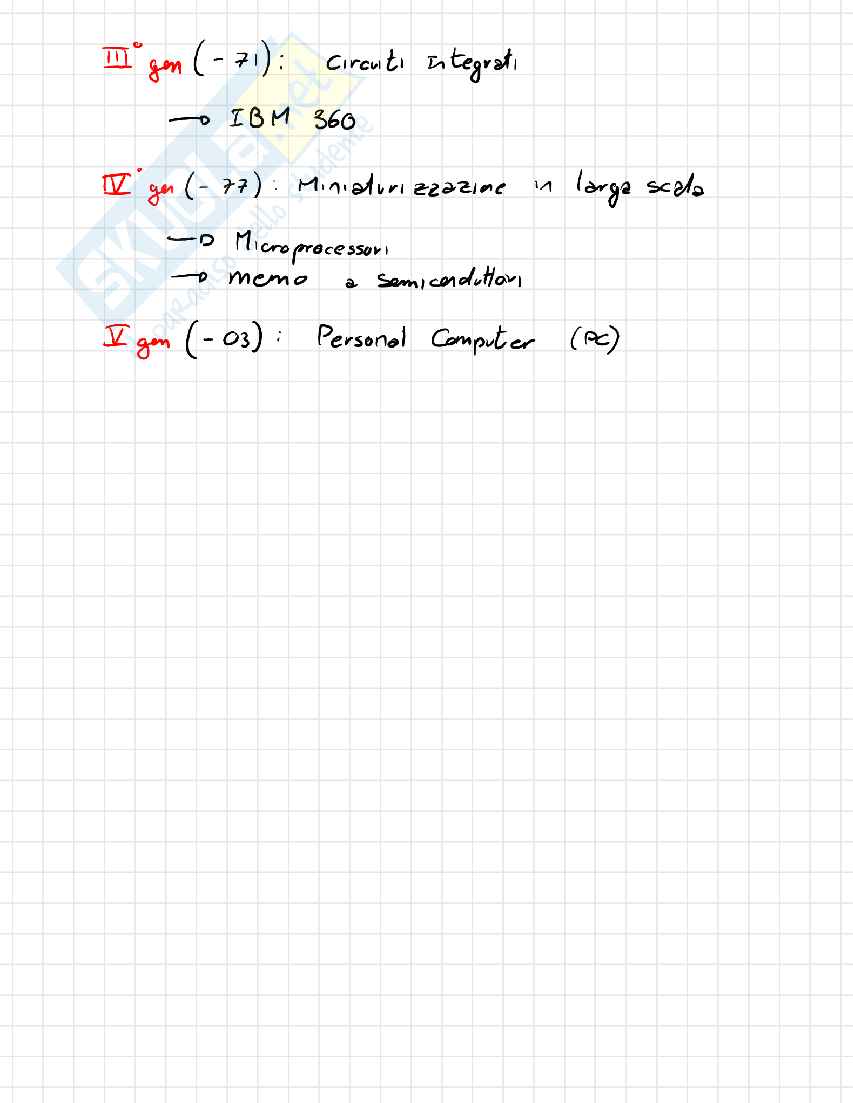 III° gen (- 71): Circuiti Integrati
→ IBM 360
IV° gen (- 77): Miniaturizzazine in larga scala
→ Microprocessori
→ memo a semiconduttori
V gen (- 03): Personal Computer (PC)
SKUOLA.net
paradiso dello studente